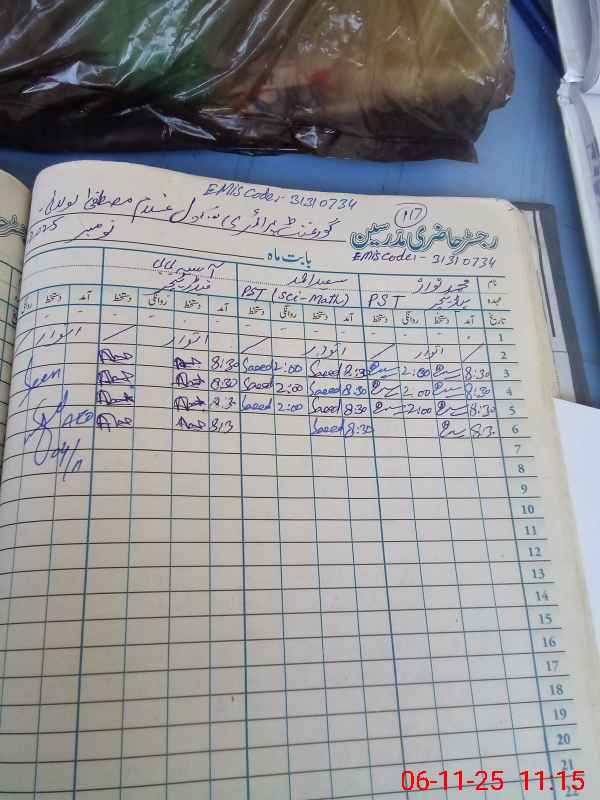 EMIS Code:- 31310734
گورنمنٹ پرائمری سکول غلام مصطفیٰ
117
رجسٹر حاضری مدرسین
EMIS Code:- 31310734
بابت ماہ نومبر 2025
نام محمد نواز سعید احمد آسیہ
عہدہ PST PST (Sci-Math)
تاریخ آمد دستخط روانگی دستخط آمد دستخط روانگی دستخط آمد دستخط روانگی دستخط آمد دستخط
1 - - - - - - - - - - - -
2 اتوار اتوار اتوار اتوار
3 8:30 2:00 8:30 Saeed 2:00 Saeed 8:30
4 8:30 2:00 8:30 Saeed 2:00 Saeed 8:30 Seen
5 8:30 2:00 8:30 Saeed 2:00 Saeed 8:30
6 8:30 8:30 Saeed 8:3
AEO
04/11
7
8
9
10
11
12
13
14
15
16
17
18
19
20
21
22
06-11-25 11:15